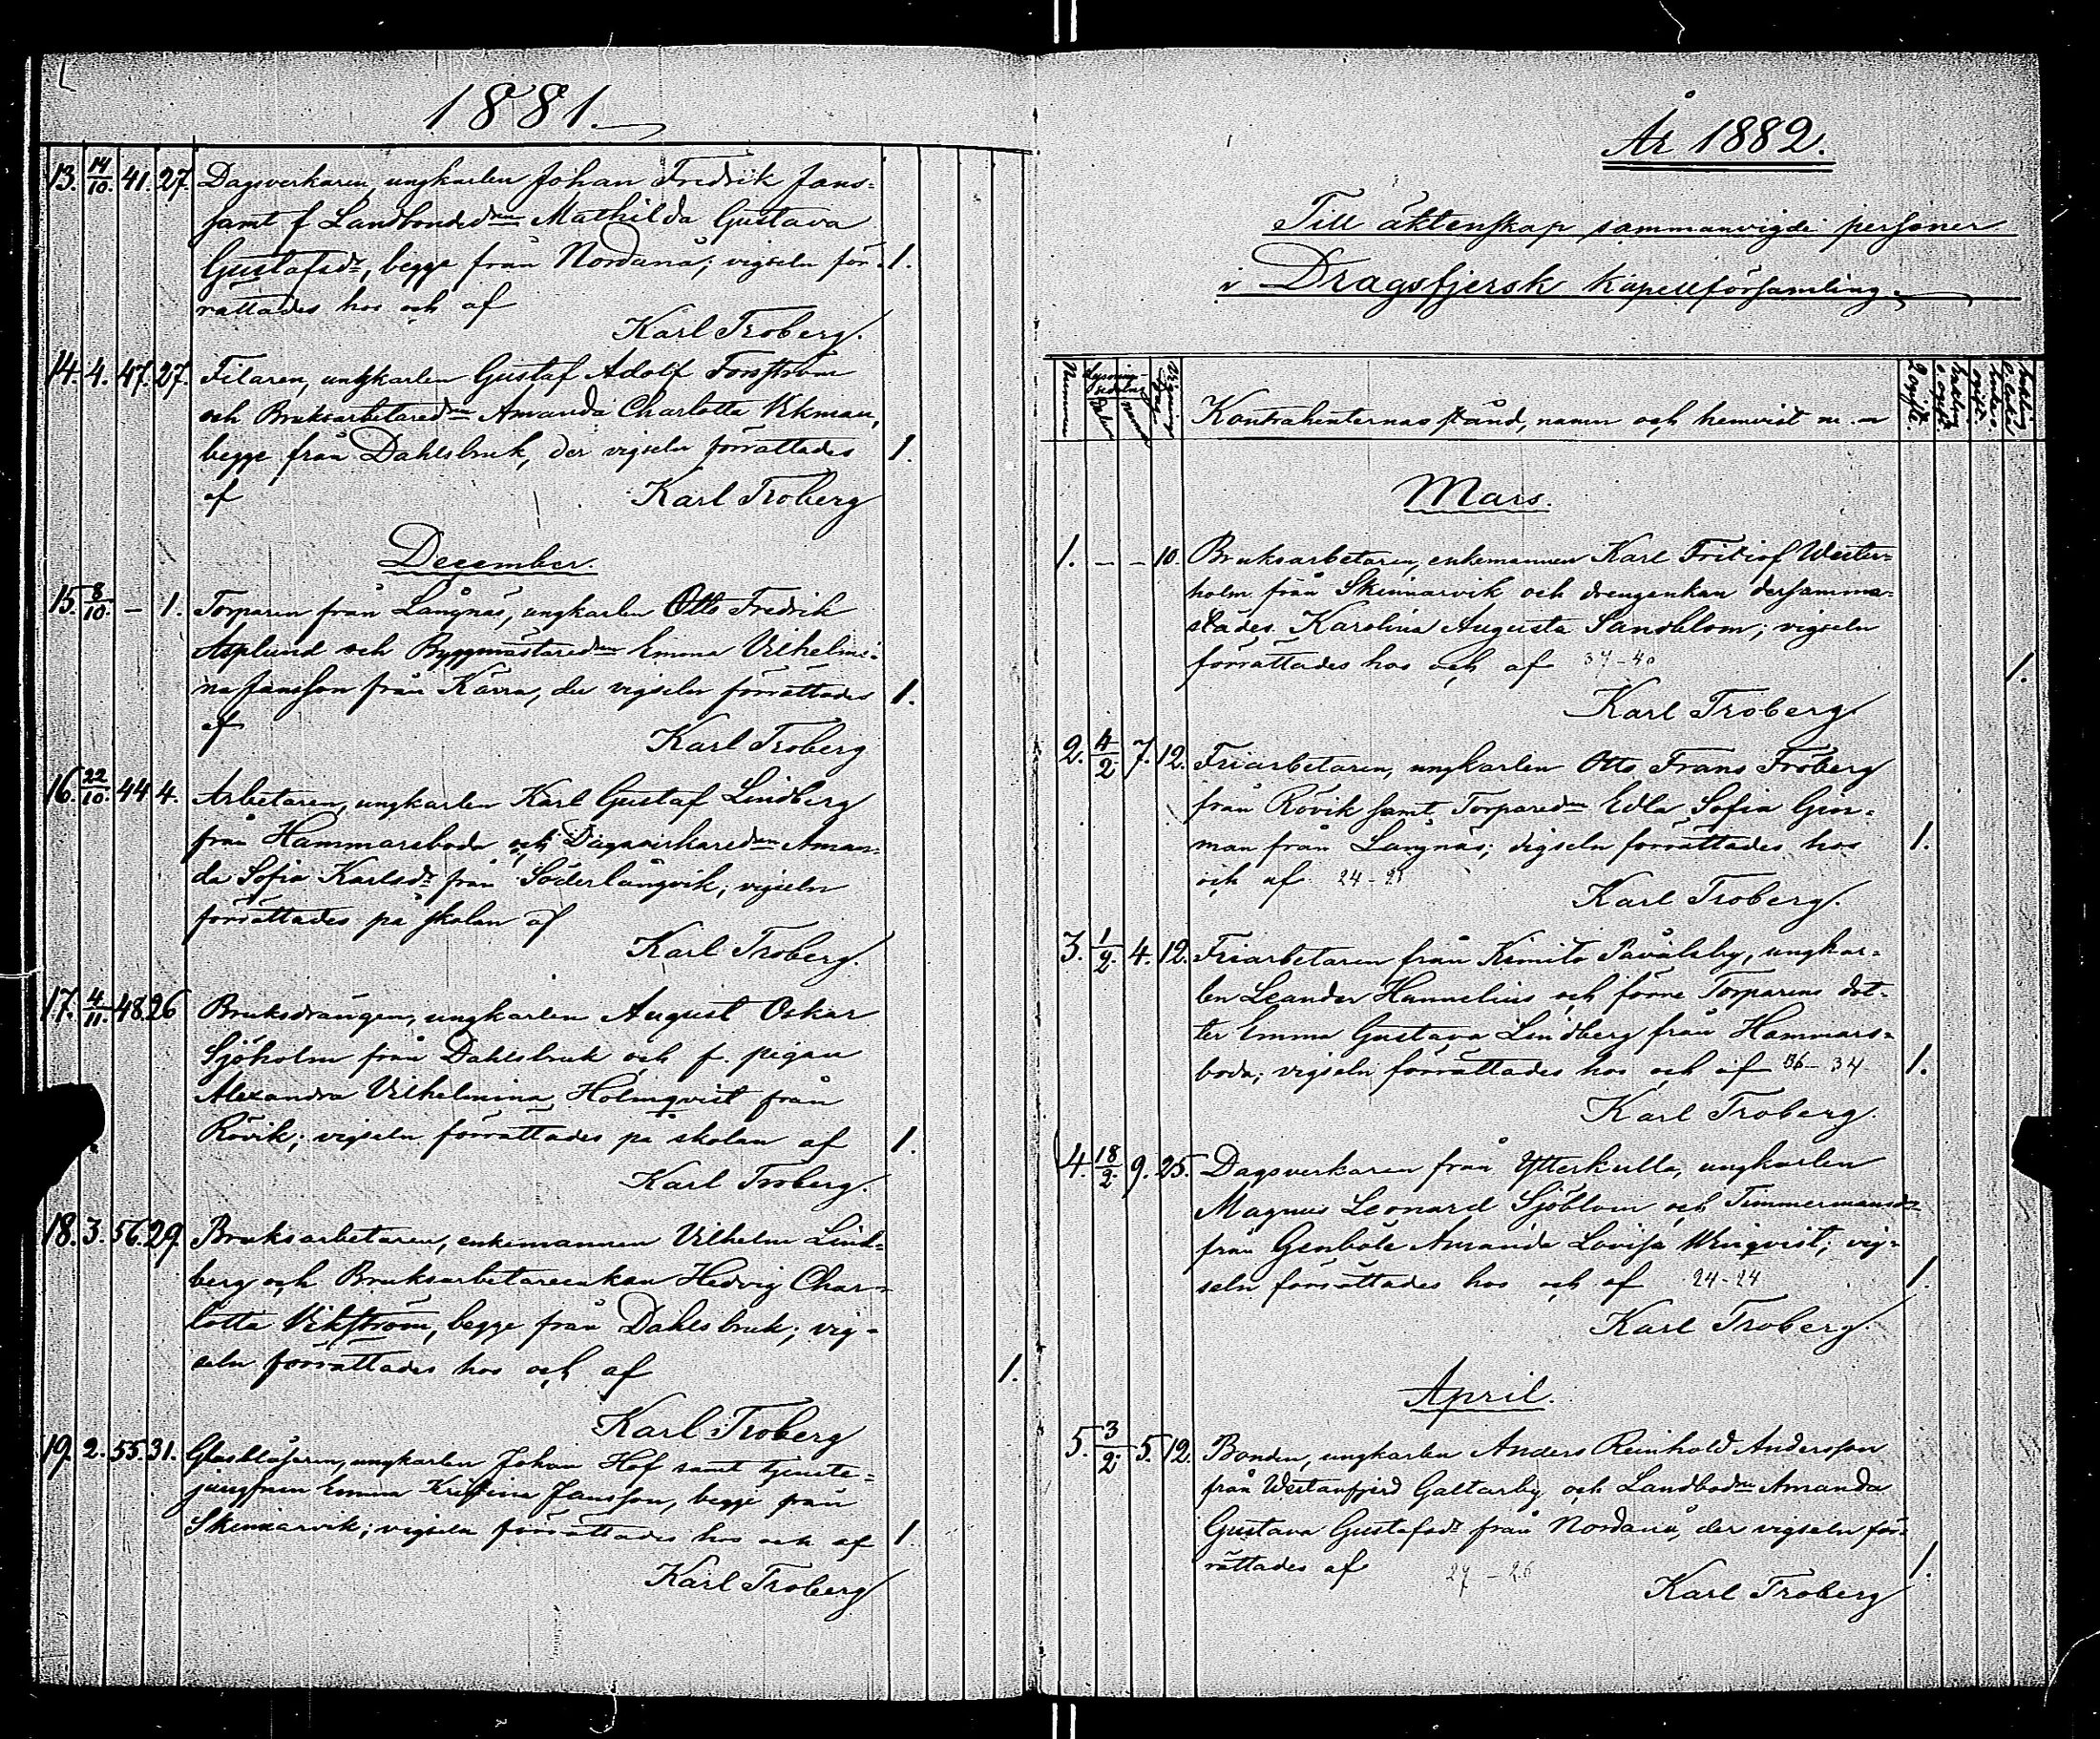 1881.
13. 14/10. 41. 27. Dagsverkaren, ungkarlen Johan Fredrik Jans-
samt f Landbondedn Mathilda Gustava
Gustafsdr, begge från Nordanå; vigseln för- 1.
rättades hos och af
Karl Troberg.
14. 4. 47. 27. Filaren, ungkarlen Gustaf Adolf Forsström
och Bruksarbetaredn Amanda Charlotta Ekman,
begge från Dahlsbruk, der vigseln förrättades 1.
af Karl Troberg
December.
15. 8/10. – 1. Torparen från Långnäs, ungkarlen Otto Fredrik
Asplund och Byggmästaredn Emma Vilhelmi-
na Jansson från Kärra, der vigseln förrättades 1.
af
Karl Troberg
16. 22/10. 44 4. Arbetaren, ungkarlen Karl Gustaf Lindberg
från Hammarsboda och Dagsverkaredn Aman-
da Sofia Karlsdr från Söderlångvik; vigseln
förrättades på skolan af
Karl Troberg.
17. 4/11. 48. 26 Bruksdrängen, ungkarlen August Oskar
Sjöholm från Dahlsbruk och f. pigan
Alexandra Vilhelmina Holmqvist från
Rövik; vigseln förrättades på skolan af 1.
Karl Troberg.
18. 3. 56. 29. Bruksarbetaren, enkemannen Vilhelm Lind-
berg och Bruksarbetareenkan Hedvig Char-
lotta Vikström, begge från Dahlsbruk; vig-
seln förrättades hos och af 1.
Karl Troberg
19. 2. 55. 31. Glasblåsaren, ungkarlen Johan Hof samt tjenste-
jungfrun Emma Kristina Jansson, begge från
Skinnarvik; vigseln förrättades hos och af 1.
Karl Troberg
År 1882.
Till äktenskap sammanvigde personer
i Dragsfjerds kapellförsamling.
Nummer Lysnings-sedelns dato numer Vignings Dag Kontrahenternas stånd, namn och hemvist m. m 2 ogifte.
Mars.
1. – – 10. Bruksarbetaren, enkemannen Karl Fritiof Wester-
holm från Skinnarvik och drengenkan dersamma-
städes Karolina Augusta Sandblom; vigseln
förrättades hos och af 37-40 1.
Karl Troberg.
2. 4/2 7. 12. Friarbetaren, ungkarlen Otto Frans Fröberg
från Rövik samt Torparedn Edla Sofia Grön-
man från Långnäs; vigseln förrättades hos 1.
och af 24-21
Karl Troberg.
3. 1/2. 4. 12. Friarbetaren från Kimito Påvalsby, ungkar-
len Leander Hannelius och förre Torparens dot-
ter Emma Gustava Lindberg från Hammars-
boda; vigseln förrättades hos och af 36-34 1.
Karl Troberg.
4. 18/2. 9. 25. Dagsverkaren från Ytterkulla, ungkarlen
Magnus Leonard Sjöblom och Timmermansdr
från Genböle Amanda Lovisa Winqvist; vig-
seln förrättades hos och af 24-24 1.
Karl Troberg.
April.
5. 3/2. 5. 12. Bonden, ungkarlen Anders Reinhold Andersson
från Westanfjerd Galtarby och Landbodn Amanda
Gustava Gustafsdr från Nordanå, der vigseln för-
rättades af 27-26 1.
Karl Troberg